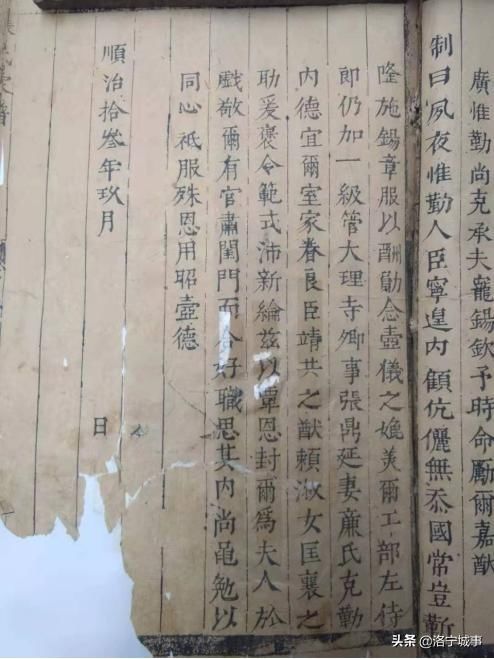 廣惟勤尚克承夫寵錫欽予時命勵爾嘉猷
制曰夙夜惟勤人臣寧遑内顧伉儷無忝國常豈靳
隆施錫章服以酬勛念壼儀之媲美爾工部左侍
郎仍加一級管大理寺卿事張鼎延妻廉氏克勤
内德宜爾室家眷良臣靖共之猷賴淑女匡襄之
助爰褒令範式沛新綸兹以覃恩封爾爲夫人於
戲敬爾有官肅閨門而合好職思其内尚黽勉以
同心祗服殊恩用昭壼德
順治拾叁年玖月
日
头条 @洛宁城事